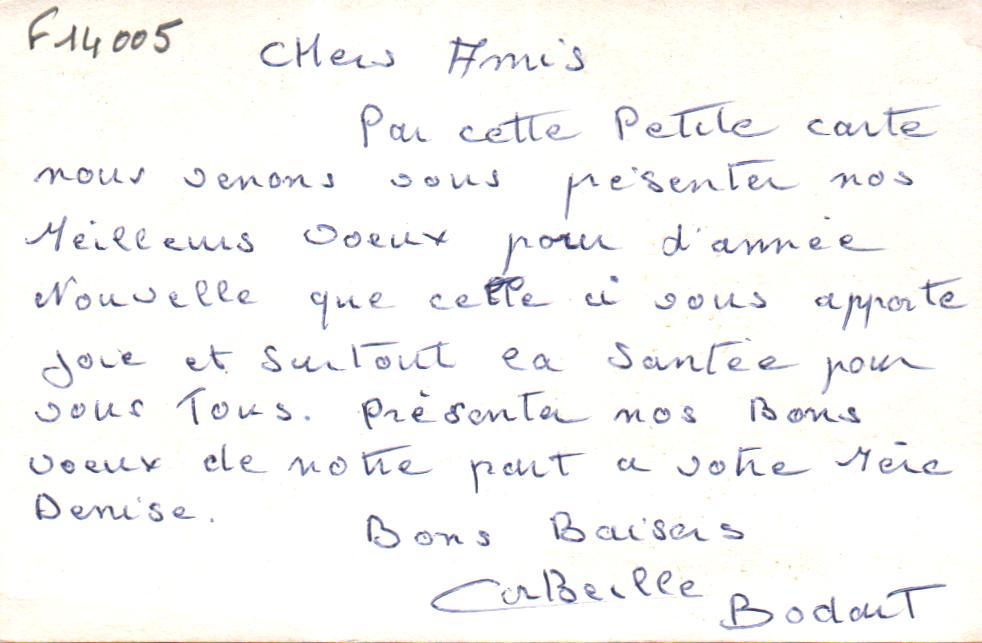 F14005
CHers Amis
Par cette Petite carte
nous venons vous présenter nos
Meilleurs voeux pour d'année
Nouvelle que cette ci vous apporte
joie et Surtout la Santée pour
vous Tous. Présenter nos Bons
voeux de notre part a votre Mère
Denise.
Bons Baisers
CorBeille BodarT